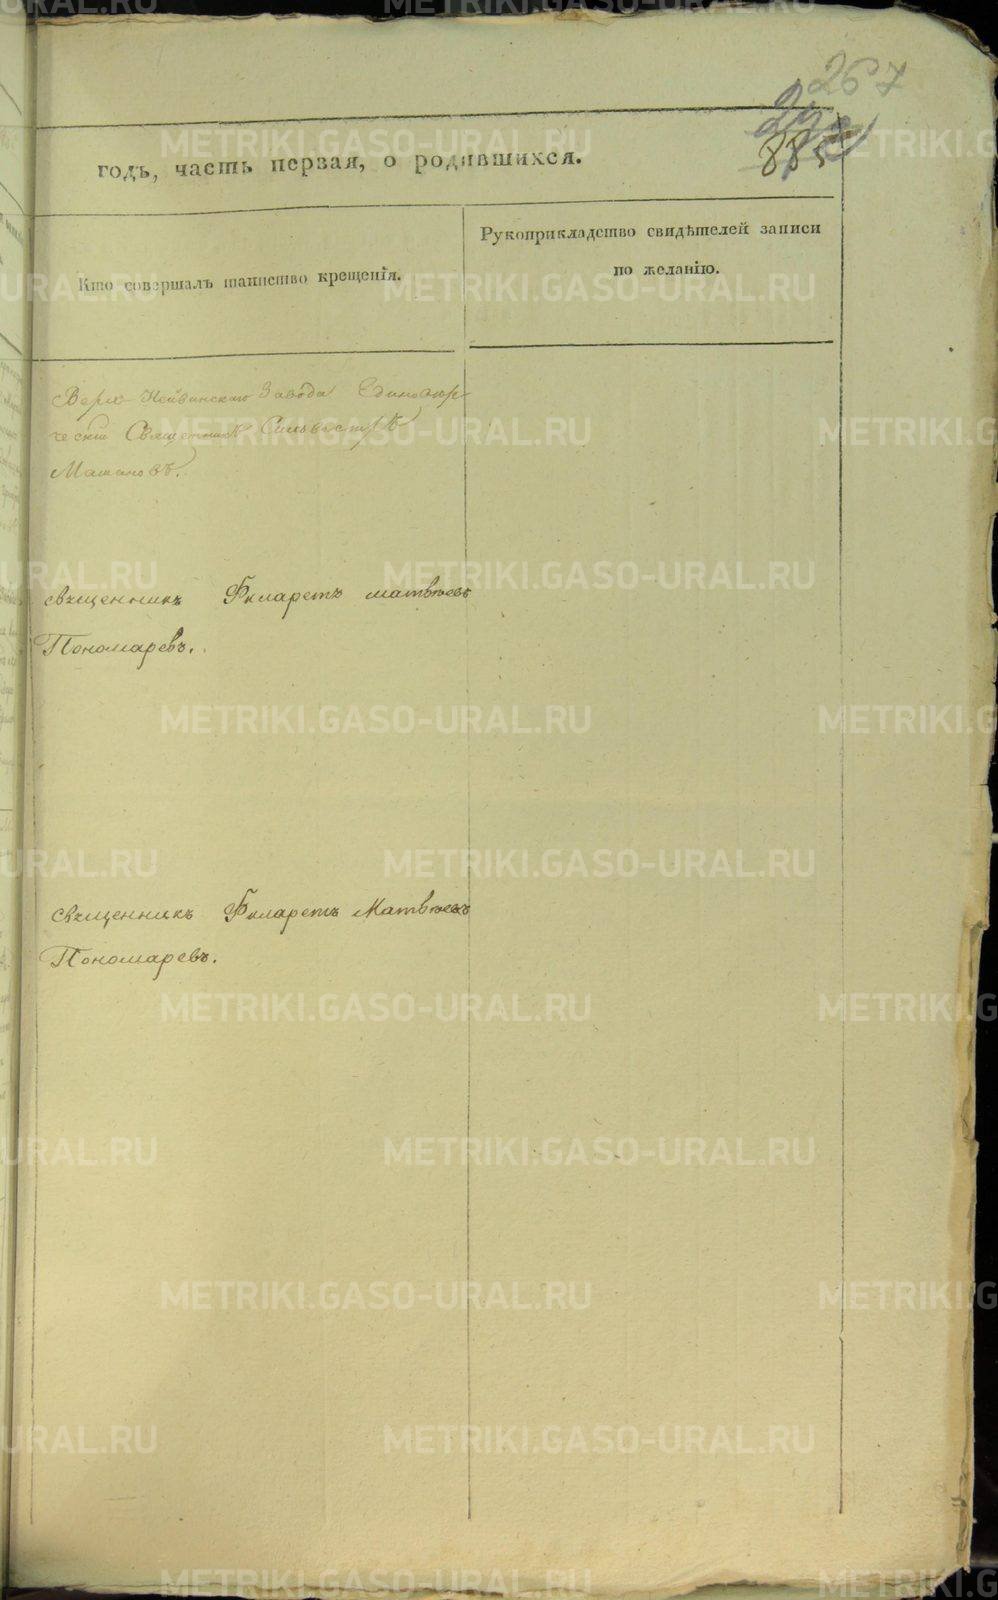 267
885
годъ, часть первая, о родившихся.
Кто совершалъ таинство крещенія.
Рукоприкладство свидѣтелей записи
по желанію.
Верх-Нейвинскаго Завода Единовѣр-
ческій Священникъ Сильвестръ
священникъ Филаретъ матвѣевъ
Пономаревъ.
священникъ Филаретъ Матвѣевъ
Пономаревъ.
METRIKI.GASO-URAL.RU